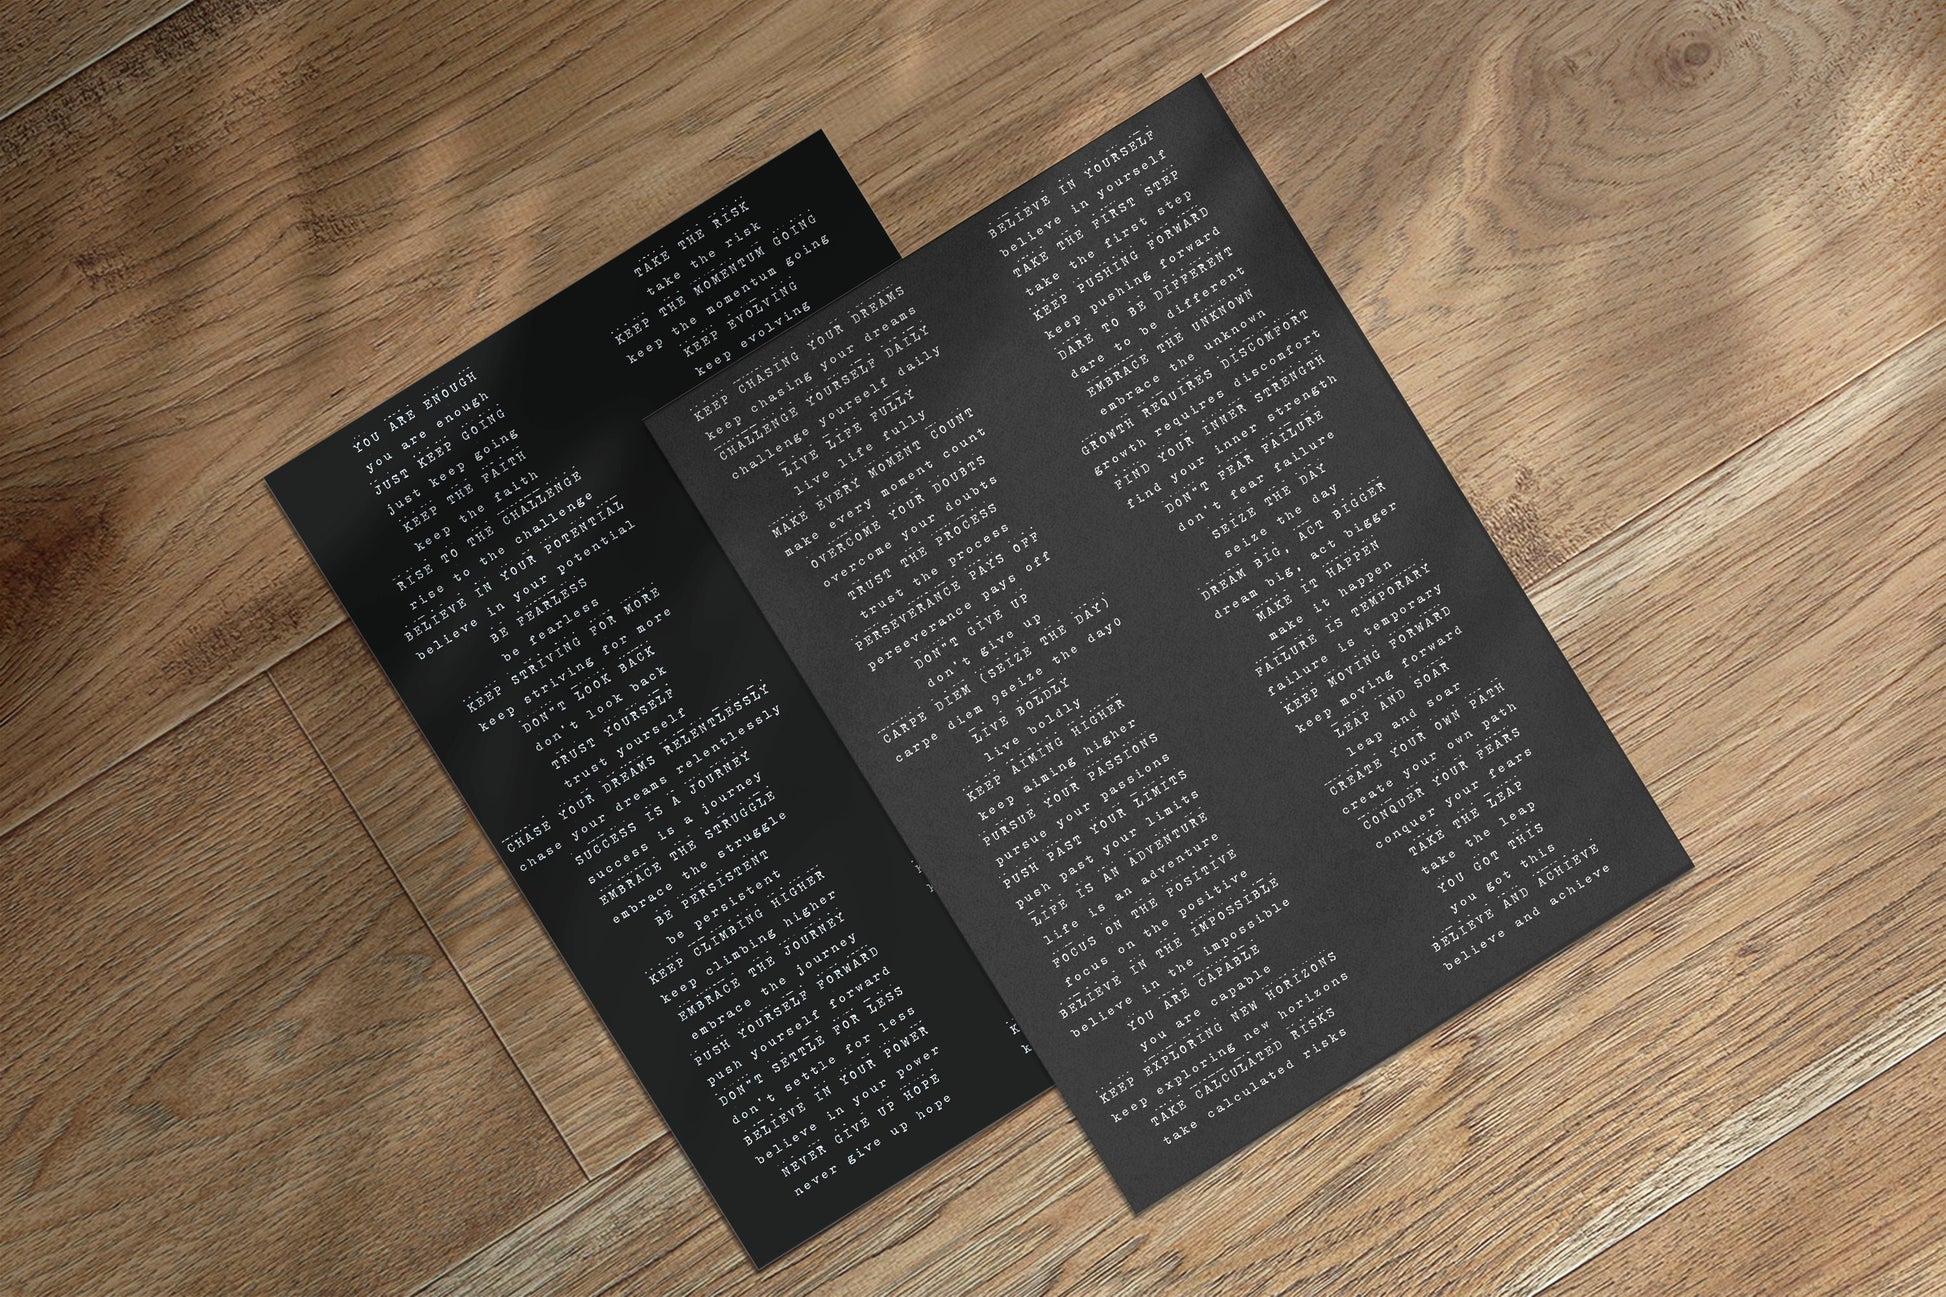 YOU ARE ENOUGH
you are enough
JUST KEEP GOING
just keep going
KEEP THE FAITH
keep the faith
RISE TO THE CHALLENGE
rise to the challenge
BELIEVE IN YOUR POTENTIAL
believe in your potential
BE FEARLESS
be fearless
KEEP STRIVING FOR MORE
keep striving for more
DON"T LOOK BACK
don't look back
TRUST YOURSELF
trust yourself
CHASE YOUR DREAMS RELENTLESSLY
chase your dreams relentlessly
SUCCESS IS A JOURNEY
success is a journey
EMBRACE THE STRUGGLE
embrace the struggle
BE PERSISTENT
be persistent
KEEP CLIMBING HIGHER
keep climbing higher
EMBRACE THE JOURNEY
embrace the journey
PUSH YOURSELF FORWARD
push yourself forward
DON"T SETTLE FOR LESS
don't settle for less
BELIEVE IN YOUR POWER
believe in your power
NEVER GIVE UP HOPE
never give up hope
TAKE THE RISK
take the risk
KEEP THE MOMENTUM GOING
keep the momentum going
KEEP EVOLVING
keep evolving
KEEP CHASING YOUR DREAMS
keep chasing your dreams
CHALLENGE YOURSELF DAILY
challenge yourself daily
LIVE LIFE FULLY
live life fully
MAKE EVERY MOMENT COUNT
make every moment count
OVERCOME YOUR DOUBTS
overcome your doubts
TRUST THE PROCESS
trust the process
PERSEVERANCE PAYS OFF
perseverance pays off
DON"T GIVE UP
don't give up
CARPE DIEM (SEIZE THE DAY)
carpe diem 9seize the day0
LIVE BOLDLY
live boldly
KEEP AIMING HIGHER
keep aiming higher
PURSUE YOUR PASSIONS
pursue your passions
PUSH PAST YOUR LIMITS
push past your limits
LIFE IS AN ADVENTURE
life is an adventure
FOCUS ON THE POSITIVE
focus on the positive
BELIEVE IN THE IMPOSSIBLE
believe in the impossible
YOU ARE CAPABLE
you are capable
KEEP EXPLORING NEW HORIZONS
keep exploring new horizons
TAKE CALCULATED RISKS
take calculated risks
BELIEVE IN YOURSELF
believe in yourself
TAKE THE FIRST STEP
take the first step
KEEP PUSHING FORWARD
keep pushing forward
DARE TO BE DIFFERENT
dare to be different
EMBRACE THE UNKNOWN
embrace the unknown
GROWTH REQUIRES DISCOMFORT
growth requires discomfort
FIND YOUR INNER STRENGTH
find your inner strength
DON"T FEAR FAILURE
don't fear failure
SEIZE THE DAY
seize the day
DREAM BIG, ACT BIGGER
dream big, act bigger
MAKE IT HAPPEN
make it happen
FAILURE IS TEMPORARY
failure is temporary
KEEP MOVING FORWARD
keep moving forward
LEAP AND SOAR
leap and soar
CREATE YOUR OWN PATH
create your own path
CONQUER YOUR FEARS
conquer your fears
TAKE THE LEAP
take the leap
YOU GOT THIS
you got this
BELIEVE AND ACHIEVE
believe and achieve